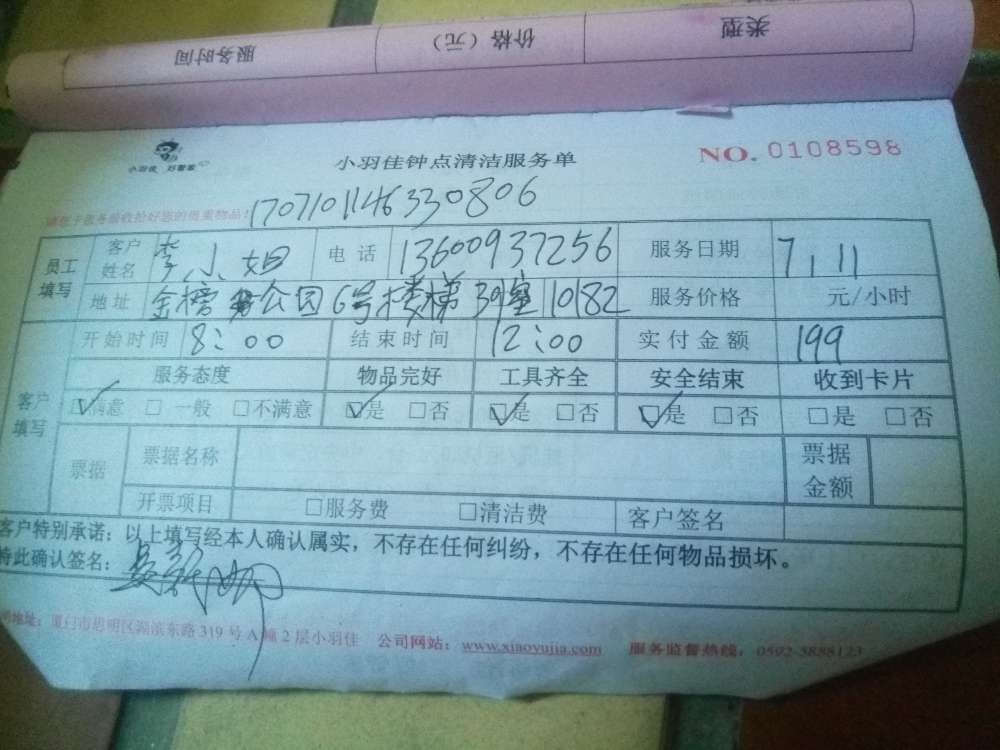 类型 价格（元） 服务时间
小羽佳 好管家
小羽佳钟点清洁服务单 NO. 0108598
170710114633 0806
员工填写 客户姓名 李小姐 电话 13600937256 服务日期 7,11
地址 金榜公园6号楼梯39室 10182 服务价格 元/小时
开始时间 8:00 结束时间 12:00 实付金额 199
客户填写 服务态度 物品完好 工具齐全 安全结束 收到卡片
☑满意 □一般 □不满意 ☑是 □否 ☑是 □否 ☑是 □否 □是 □否
票据 票据名称 票据金额
开票项目 □服务费 □清洁费 客户签名
客户特别承诺：以上填写经本人确认属实，不存在任何纠纷，不存在任何物品损坏。
特此确认签名：
地址：厦门市思明区湖滨东路319号A幢2层小羽佳 公司网站：www.xiaoyujia.com 服务监督热线：0592-5888123